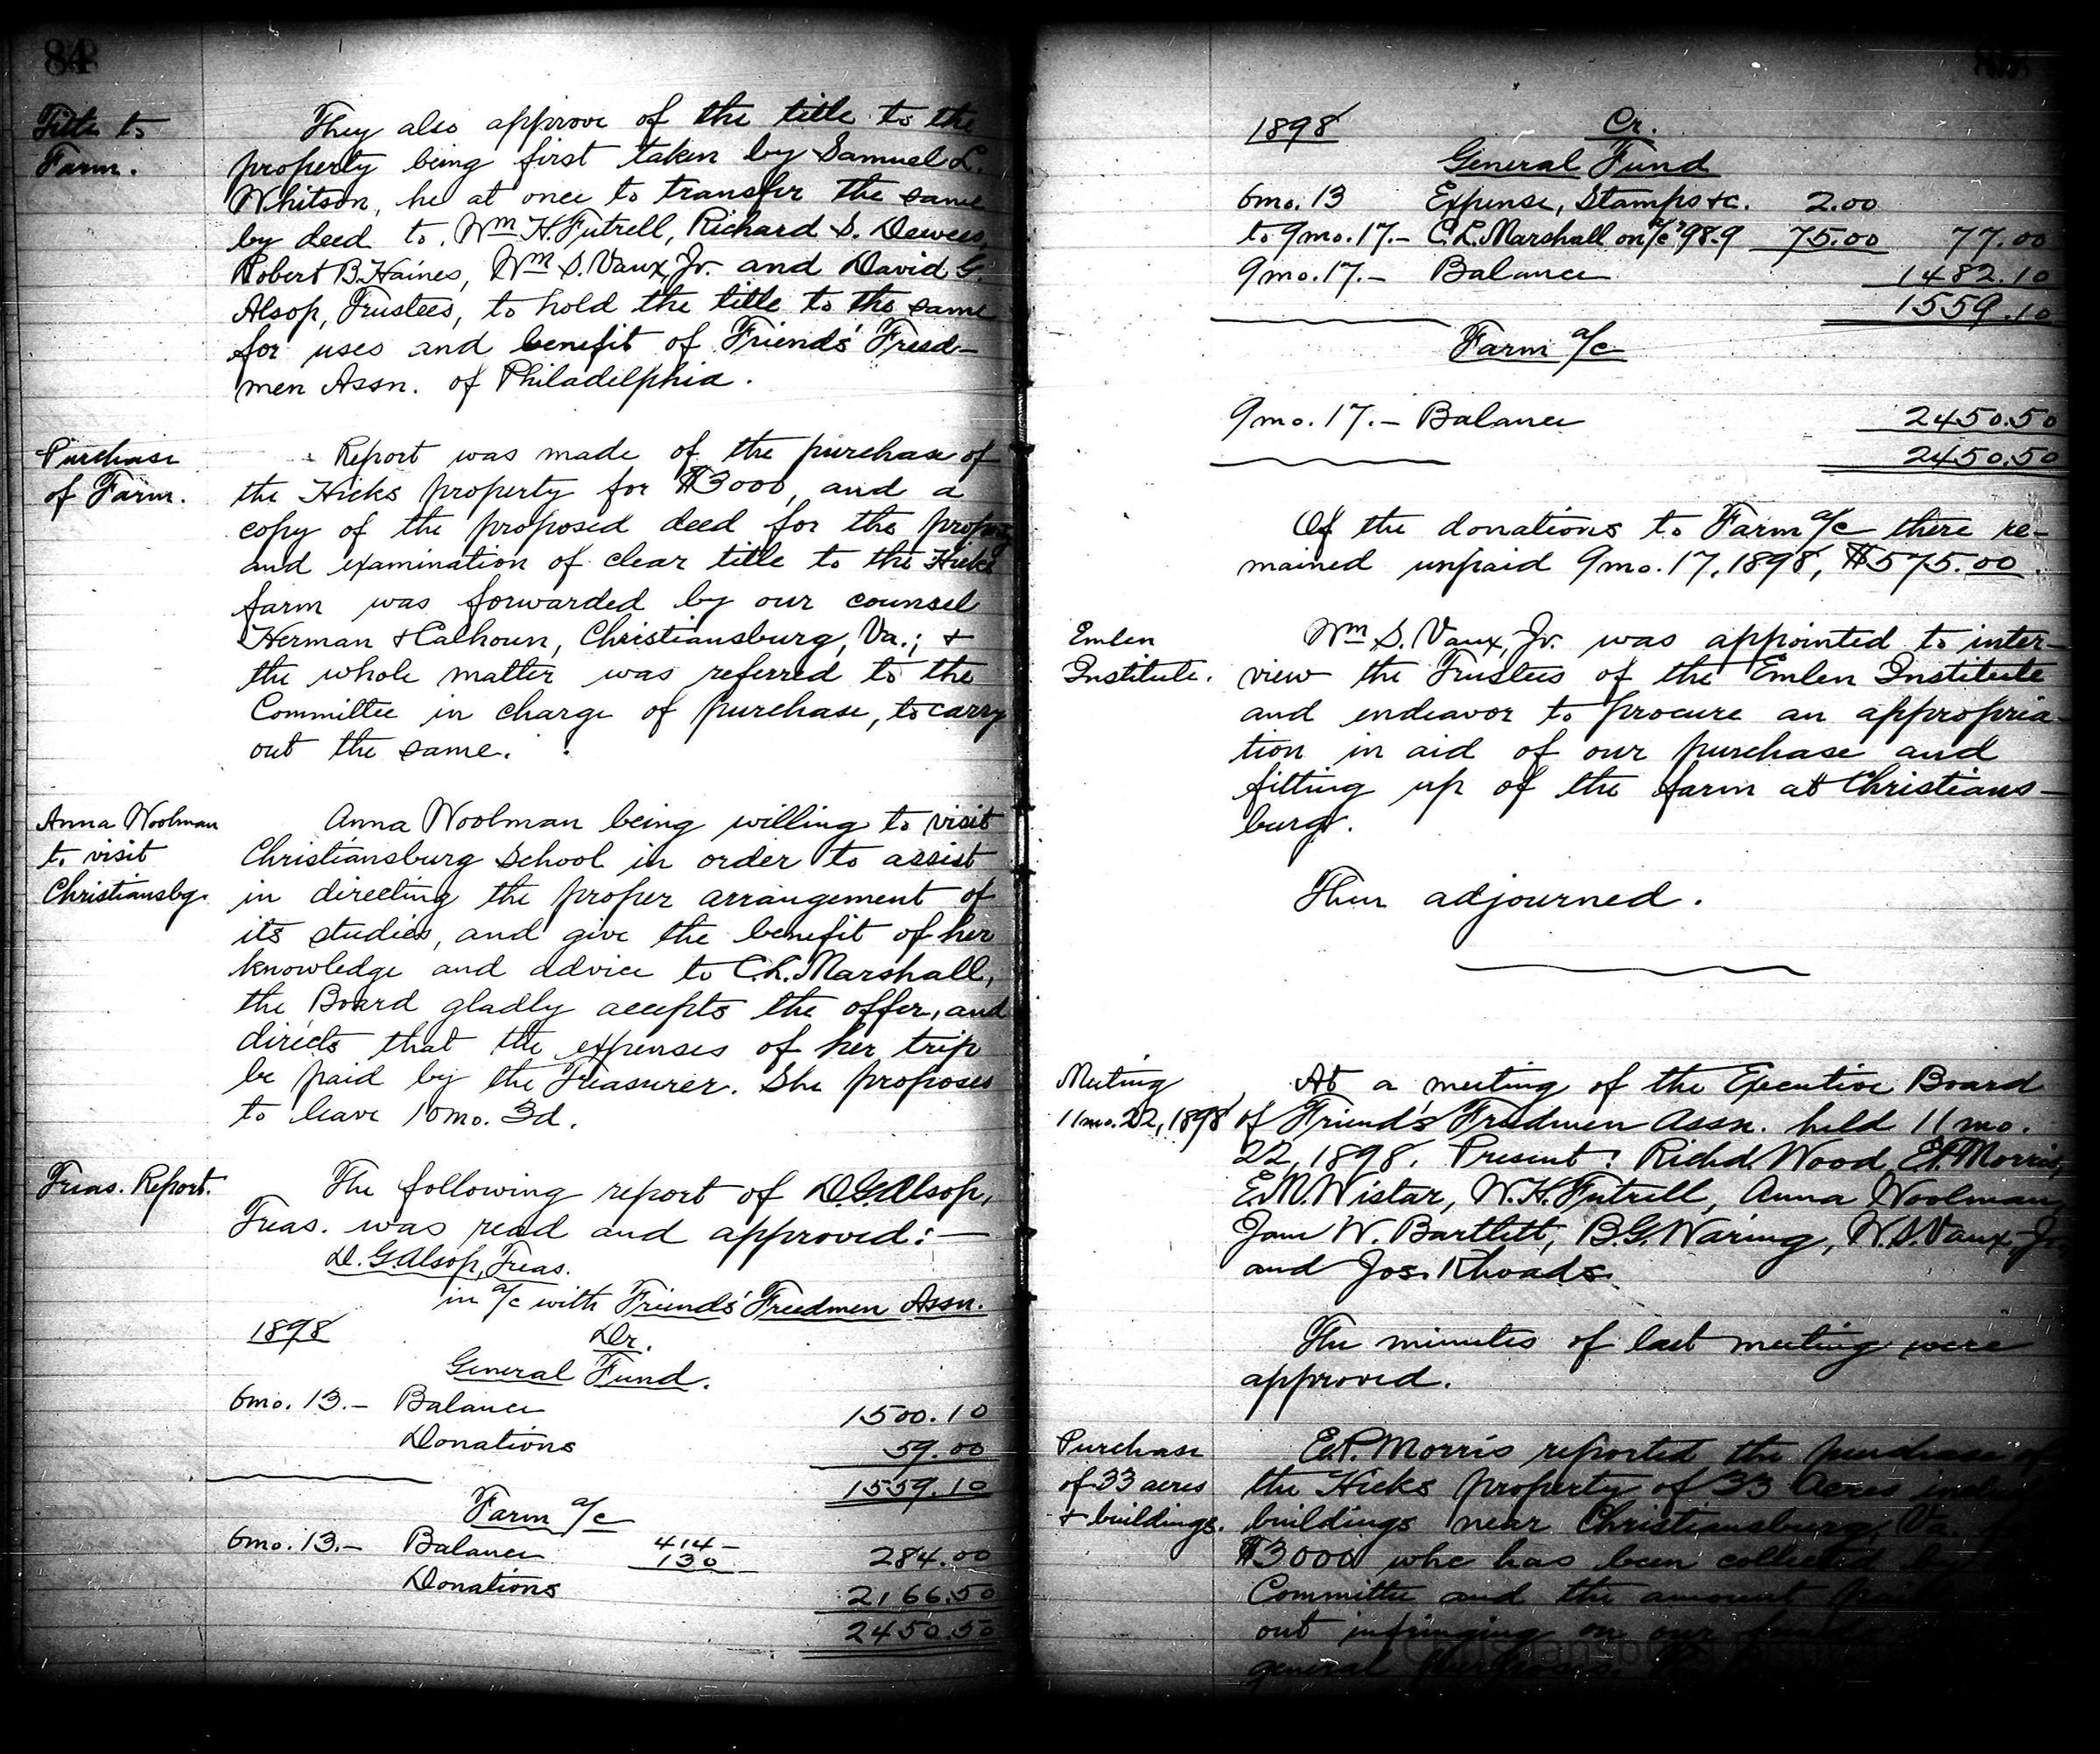 84
Title to
Farm.
They also approve of the title to the
property being first taken by Samuel L.
Whitson, he at once to transfer the same
by deed to Wm H. Futrell, Richard S. Dewees,
Robert B. Haines, Wm S. Vaux, Jr. and David G.
Alsop, Trustees, to hold the title to the same
for uses and benefit of Friends' Freed-
men Assn. of Philadelphia.
Purchase
of Farm.
Report was made of the purchase of
the Hicks property for $3000, and a
copy of the proposed deed for the proper
and examination of clear title to the Hicks
farm was forwarded by our counsel
Herman & Calhoun, Christiansburg, Va.; &
the whole matter was referred to the
Committee in charge of purchase, to carry
out the same.
Anna Woolman
to visit
Christiansbg.
Anna Woolman being willing to visit
Christiansburg School in order to assist
in directing the proper arrangement of
its studies, and give the benefit of her
knowledge and advice to C.L. Marshall,
the Board gladly accepts the offer, and
directs that the expenses of her trip
be paid by the Treasurer. She proposes
to leave 10mo. 3d.
Treas. Report.
The following report of D.G. Alsop,
Treas. was read and approved:—
D. G. Alsop, Treas.
in a/c with Friends' Freedmen Assn.
1898 Dr.
General Fund.
6mo. 13.— Balance 1500.10
Donations 59.00
1559.10
Farm a/c
6mo. 13.— Balance 414— 
130 284.00
Donations 2166.50
2450.50
1898 Cr.
General Fund
6mo. 13 Expense, Stamps &c. 2.00
to 9mo. 17.— C.L. Marshall on a/c '98-9 75.00 77.00
9mo. 17.— Balance 1482.10
1559.10
Farm a/c
9mo. 17.— Balance 2450.50
2450.50
Of the donations to Farm a/c there re-
mained unpaid 9mo. 17, 1898, $575.00.
Emlen
Institute.
Wm S. Vaux, Jr. was appointed to inter-
view the Trustees of the Emlen Institute
and endeavor to procure an appropria-
tion in aid of our purchase and
fitting up of the farm at Christians-
burg.
Then adjourned.
Meeting
11mo. 22, 1898
At a meeting of the Executive Board
of Friend's Freedmen Assn. held 11mo.
22, 1898. Present: Richd. Wood, E.P. Morris,
E.M. Wistar, W.H. Futrell, Anna Woolman,
Jane W. Bartlett, B.G. Waring, W.S. Vaux, Jr.
and Jos. Rhoads.
The minutes of last meeting were
approved.
Purchase
of 33 acres
& buildings.
E.P. Morris reported the purchase of
the Hicks property of 33 Acres
buildings near Christiansburg, Va
$3000 whc has been collected by
Committee and the amount paid
out infringing on our funds
general purposes.